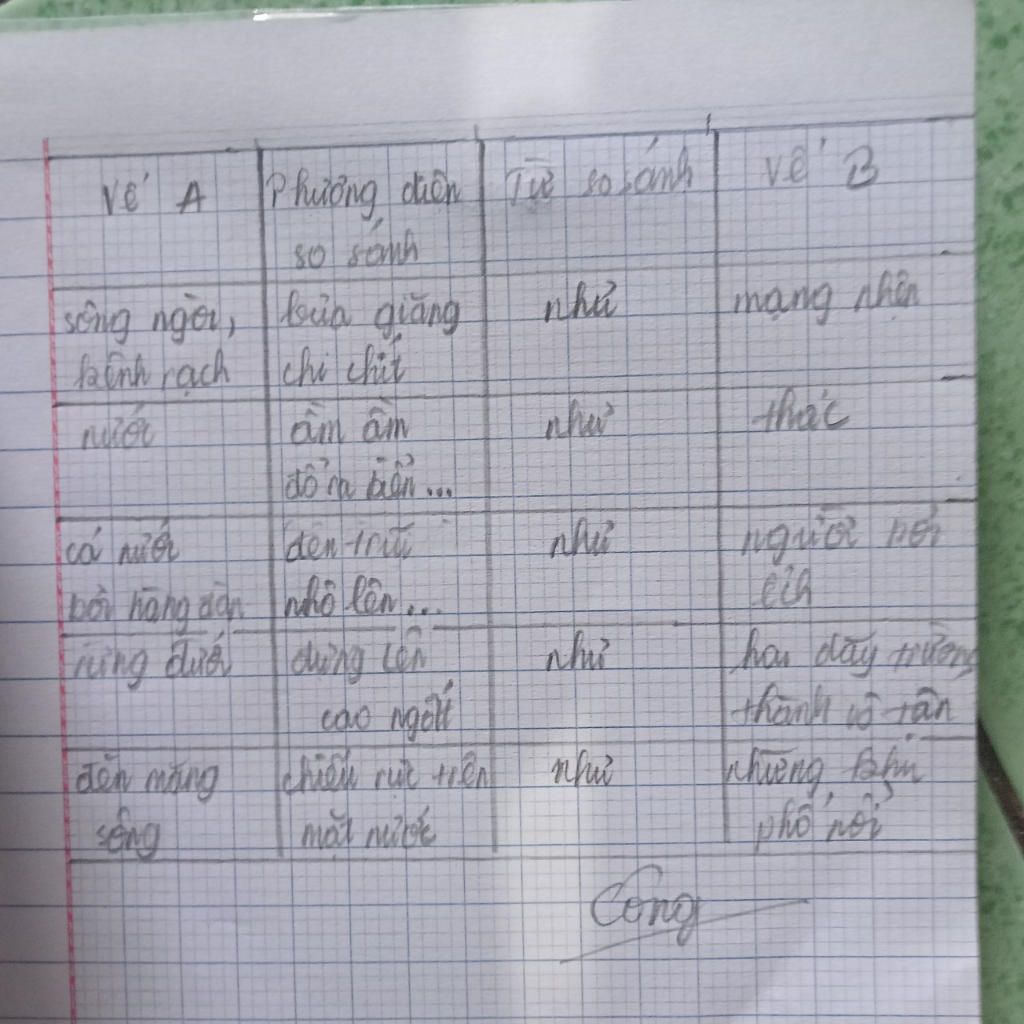 Vế A
Phương diện
so sánh
Từ so sánh
Vế B
sông ngòi,
kênh rạch
bủa giăng
chi chít
như
mạng nhện
nước
ầm ầm
đổ ra biển...
như
thác
cá nước
bơi hàng đàn
đen trũi
nhô lên...
như
người bơi
ếch
rừng đước
dựng lên
cao ngất
như
hai dãy trường
thành vô tận
đèn măng
sông
chiếu rực trên
mặt nước
như
những khu
phố nổi